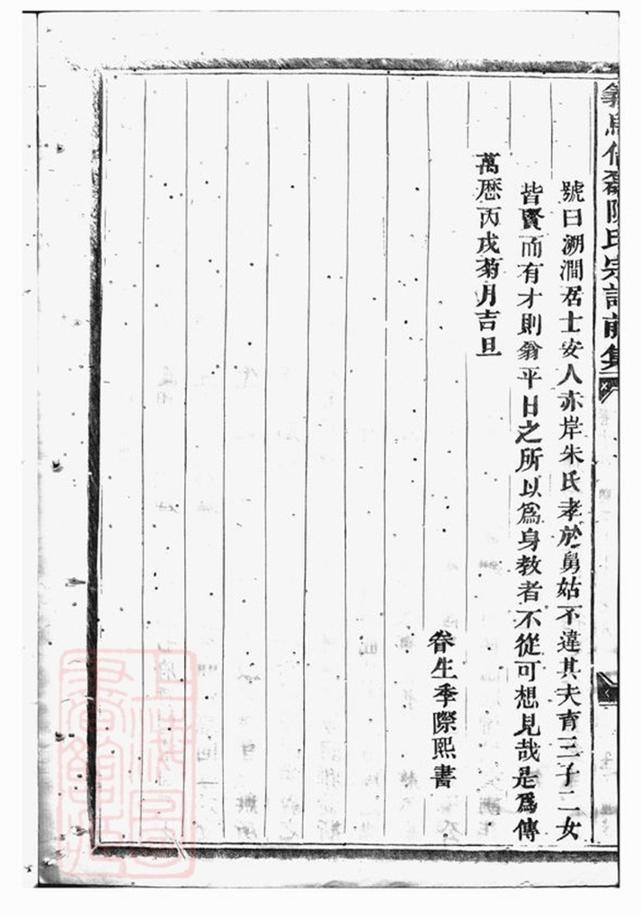 陳氏宗譜前集
號曰溯澗居士安人亦岸朱氏孝於舅姑不違其夫育三子二女
皆賢而有才則翁平日之所以爲身教者不從可想見哉是爲傳
萬歷丙戌菊月吉旦
眷生季際熙書